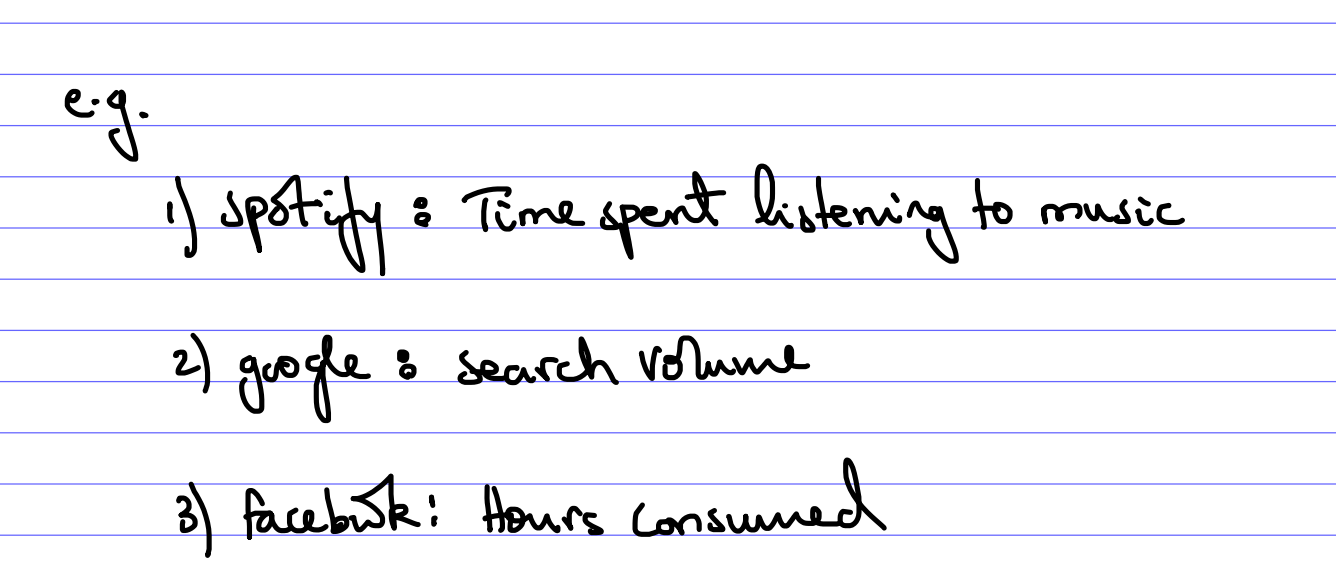 e.g.
1) spotify : Time spent listening to music
2) google : search volume
3) facebook : Hours consumed